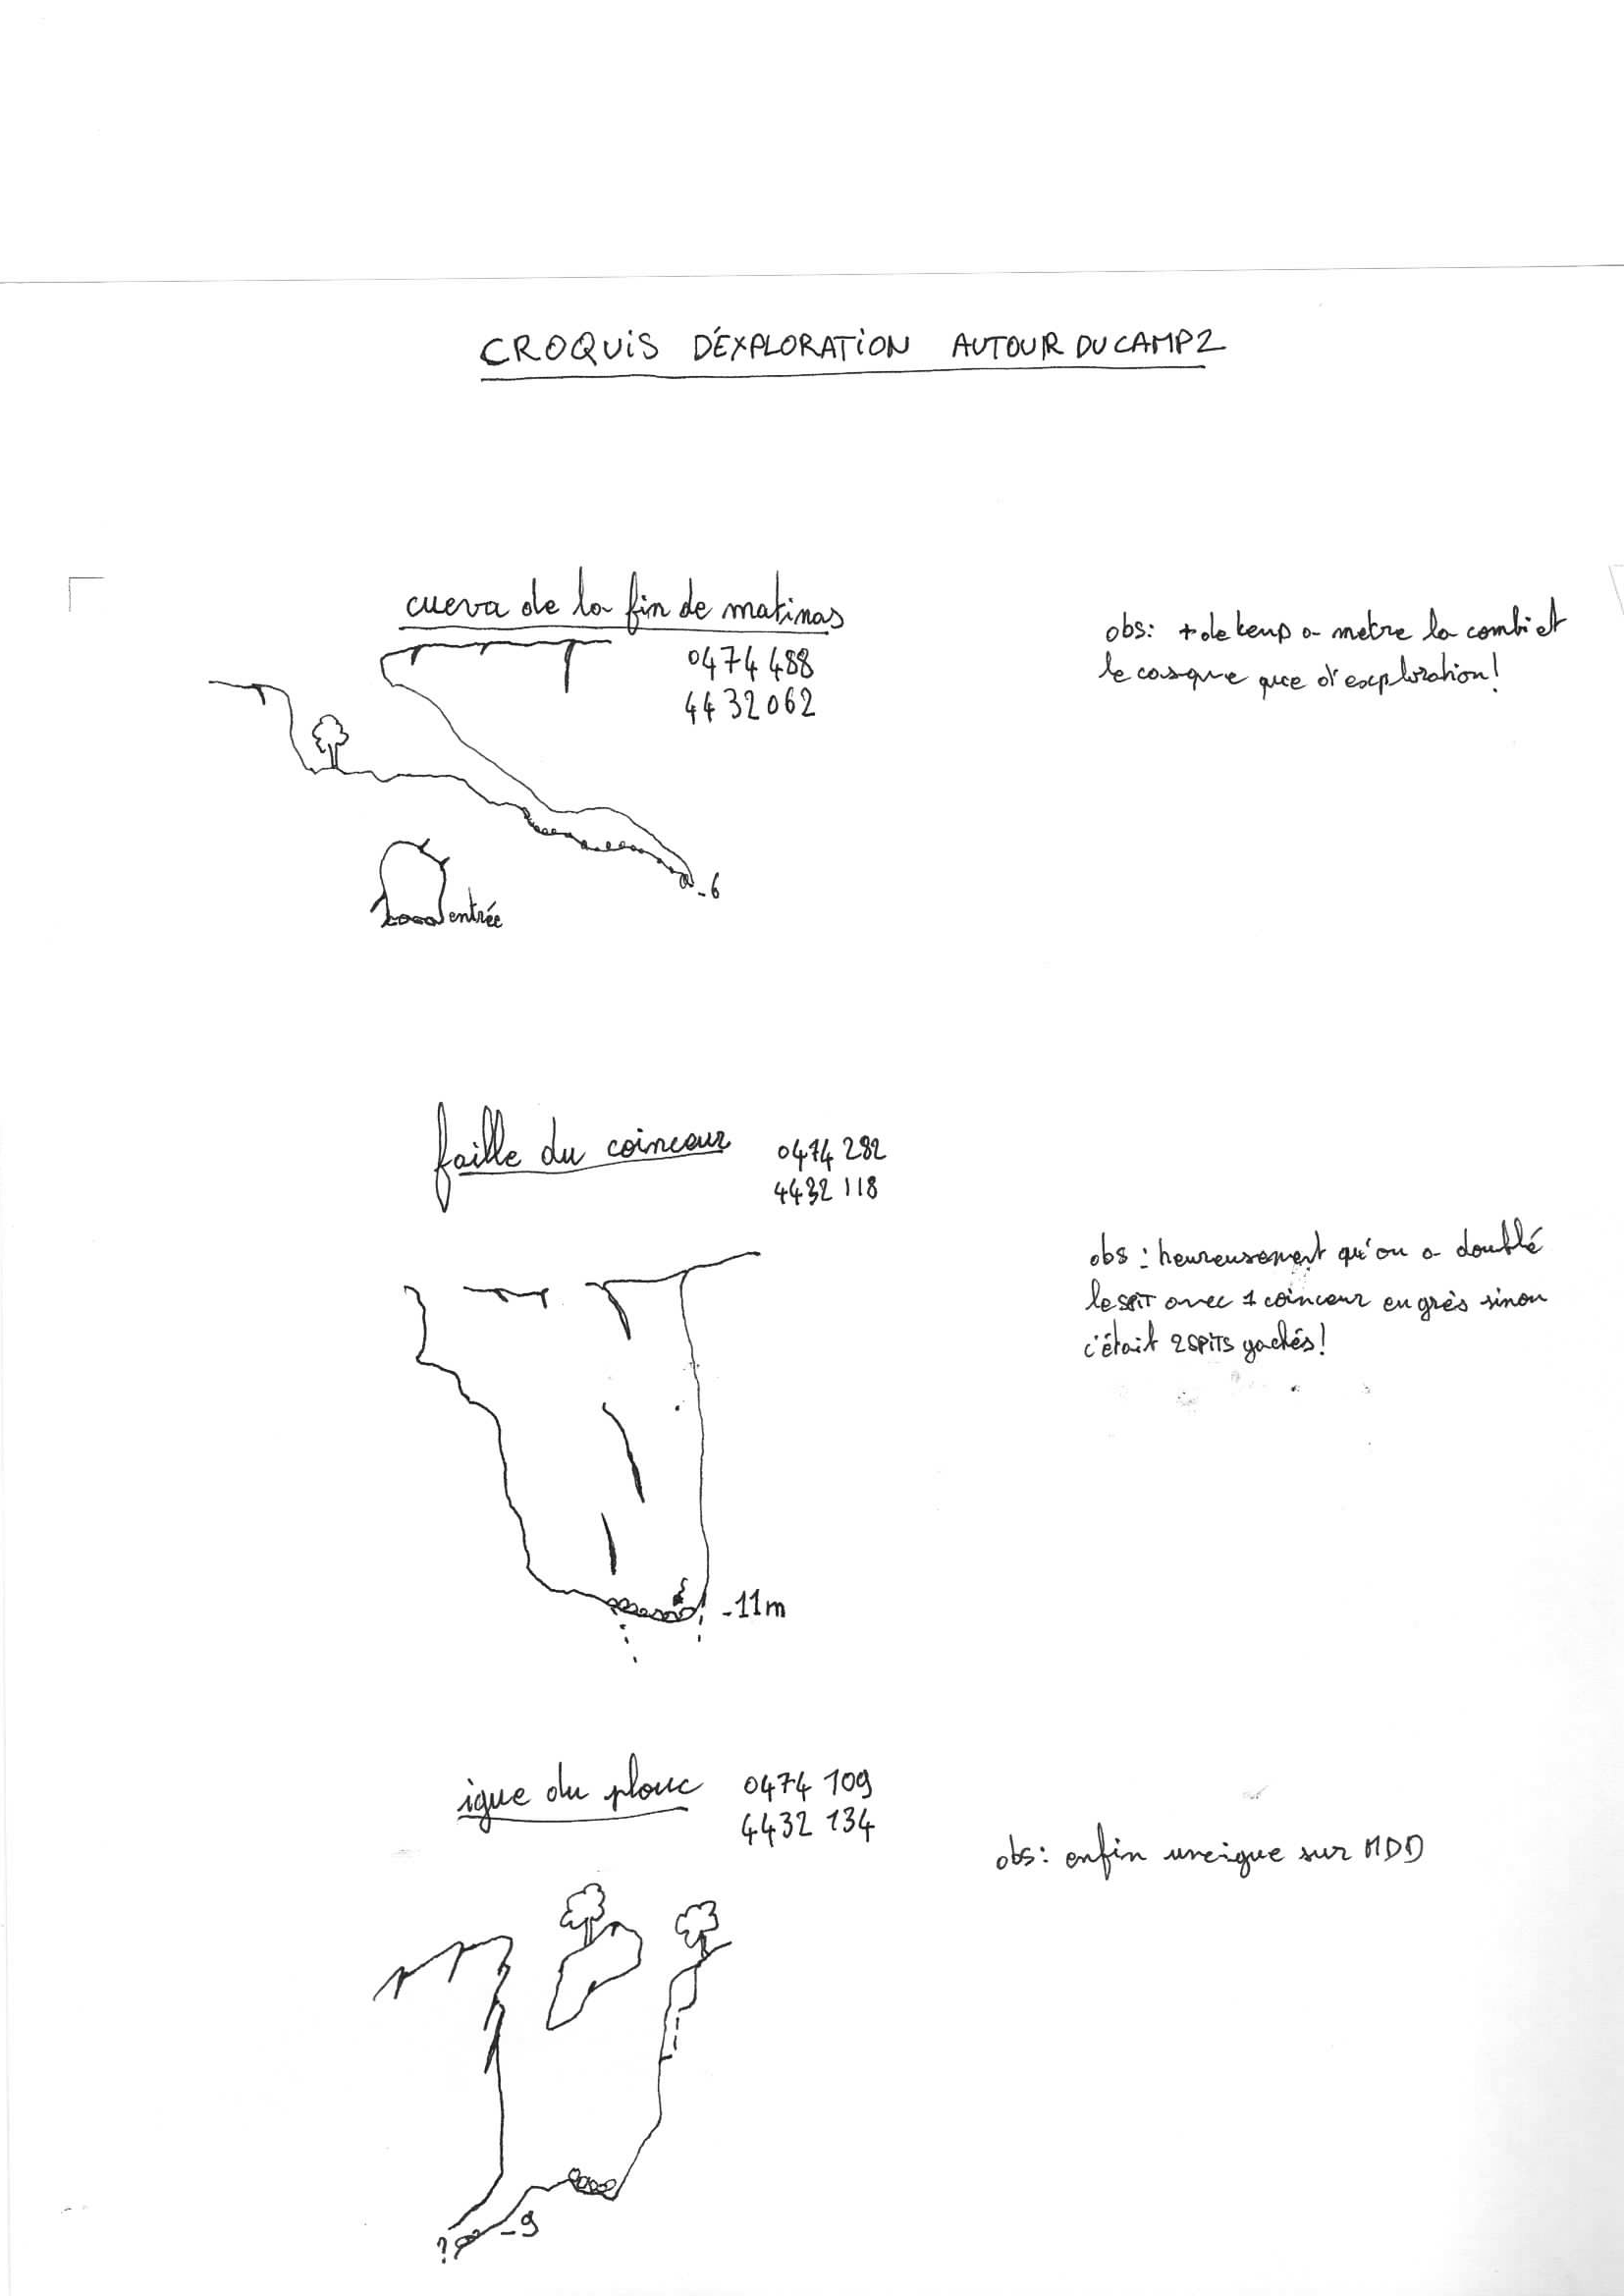 CROQUIS D'ÉXPLORATION AUTOUR DU CAMP2
cueva de la fin de matinas
0474 488
4432 062
obs: + de temp a metre la combi et
le casque que d'exploration!
-6
entrée
faille du coinceur
0474 282
4432 118
obs: heureusement qu'on a doublé
le SPIT avec 1 coinceur en grès sinon
c'était 2 SPITS gachés!
-11m
igue du plouc
0474 109
4432 134
obs: enfin une igue sur MDD
-9
?